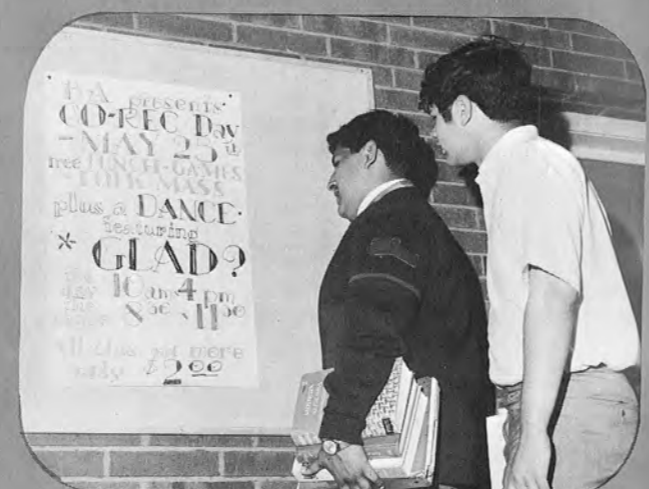 presents
CO-REC Day
- MAY 25th
free LUNCH-GAMES
FOLK MASS
plus a DANCE-
featuring
* GLAD?
the day 10 am 4 pm
the 8:00 - 11:00
All this and more
only $2.00